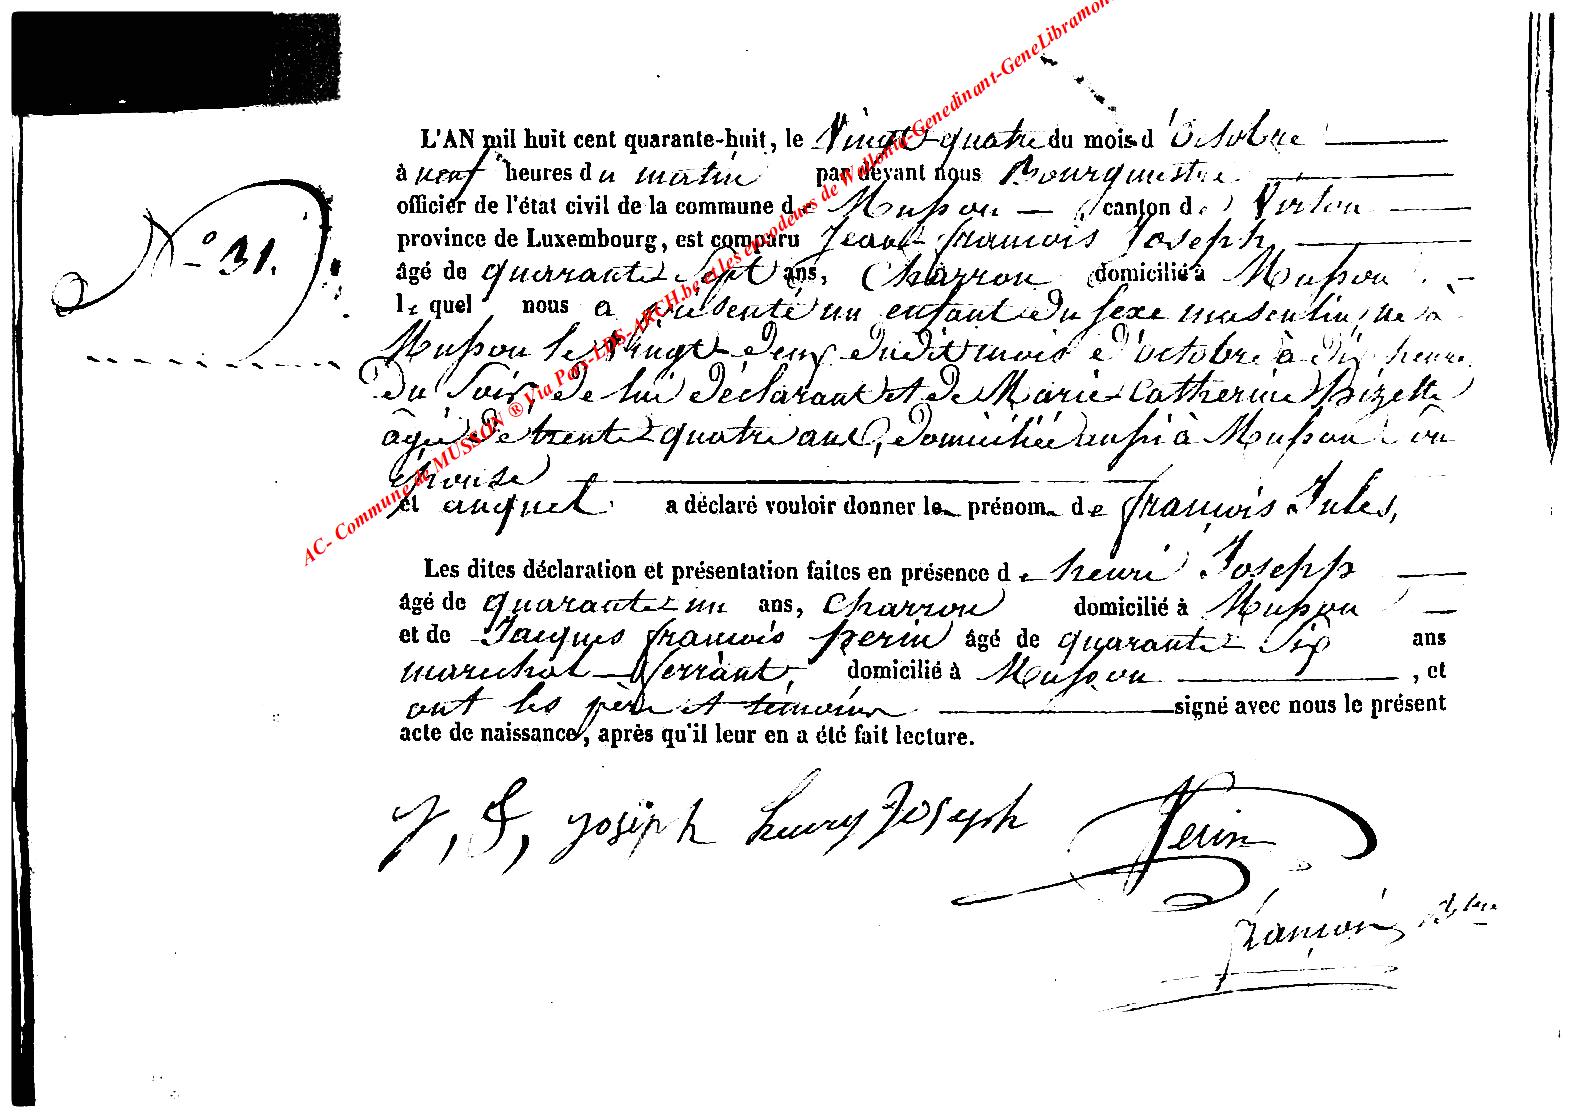 AC- Commune de MUSSON ® Via Part-LDS-ARCH.be et les encodeurs de Wallonia-Genedinant-GeneLibramon
N° 31.
L'AN mil huit cent quarante-huit, le Vingt-quatre du mois d'Octobre
à neuf heures du matin par devant nous Bourgmestre
officier de l'état civil de la commune de Musson canton de Virton
province de Luxembourg, est comparu Jean-françois Joseph
âgé de quarante sept ans, Charron domicilié à Musson
lequel nous a présenté un enfant du sexe masculin, né à
Musson le Vingt-deux dudit mois d'octobre à dix heures
du Soir, de lui déclarant et de Marie-Catherine Bizette
âgée de trente-quatre ans, domiciliée aussi à Musson son
épouse
et auquel a déclaré vouloir donner le prénom de françois Jules,
Les dites déclaration et présentation faites en présence de henri Joseph
âgé de quarante-un ans, Charron domicilié à Musson
et de Jacques françois perin âgé de quarante-six ans
maréchal-ferrant, domicilié à Musson , et
ont les père et témoins signé avec nous le présent
acte de naissance, après qu'il leur en a été fait lecture.
J, F, Joseph henry Joseph Perin
françois